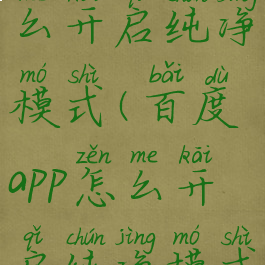 么开启纯净
mó shì bǎi dù
模式(百度
zěn me kāi
app怎么开
qǐ chún jìng mó shì
启纯净模式